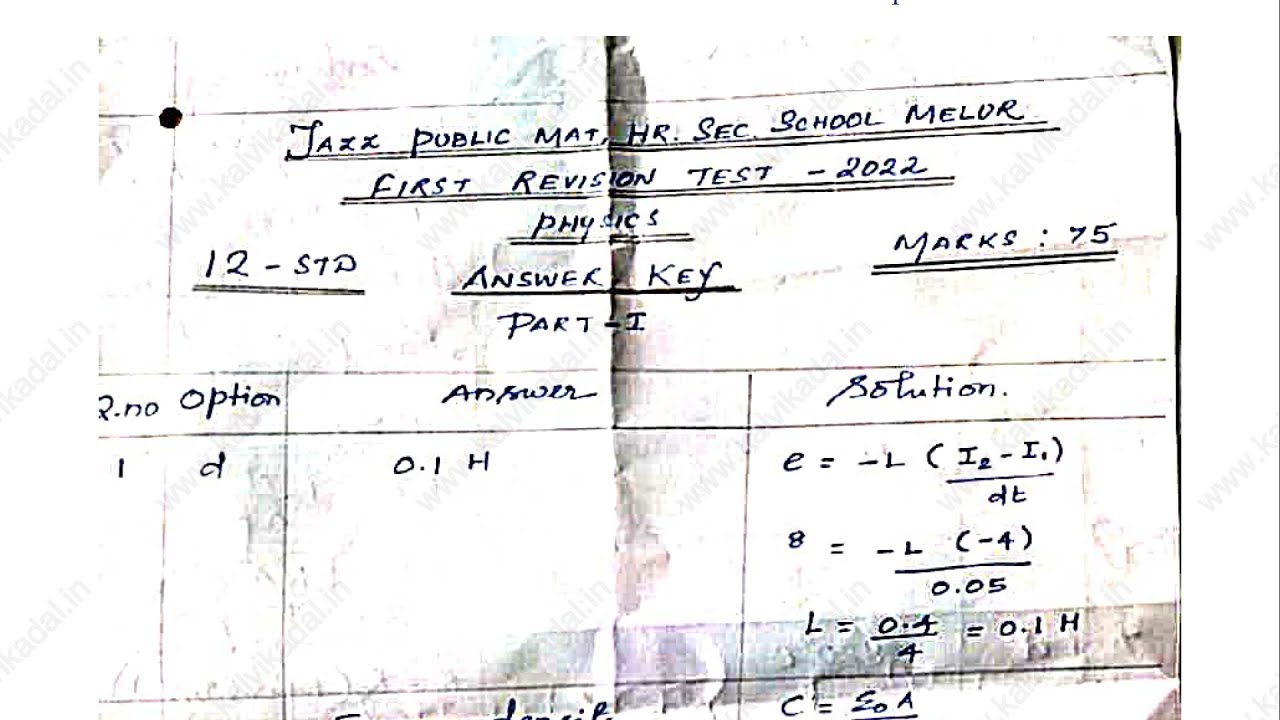 JAXX PUBLIC MAT, HR. SEC. SCHOOL MELUR
FIRST REVISION TEST - 2022
PHYSICS
12 - STD
MARKS : 75
ANSWER KEY
PART - I
Q.no Option Answer Solution.
1 d 0.1 H e = -L (I₂ - I₁)
dt
8 = -L (-4)
0.05
L = 0.4 = 0.1 H
4
C = Σ₀ A
www.kalvikadal.in